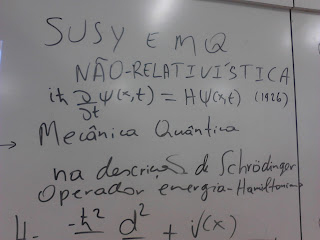 SUSY E MQ
NÃO-RELATIVÍSTICA
iħ ∂/∂t Ψ(x,t) = HΨ(x,t) (1926)
→ Mecânica Quântica
na descrição de Schrödinger
Operador energia-Hamiltoniano
H = -ħ² d² + V(x)